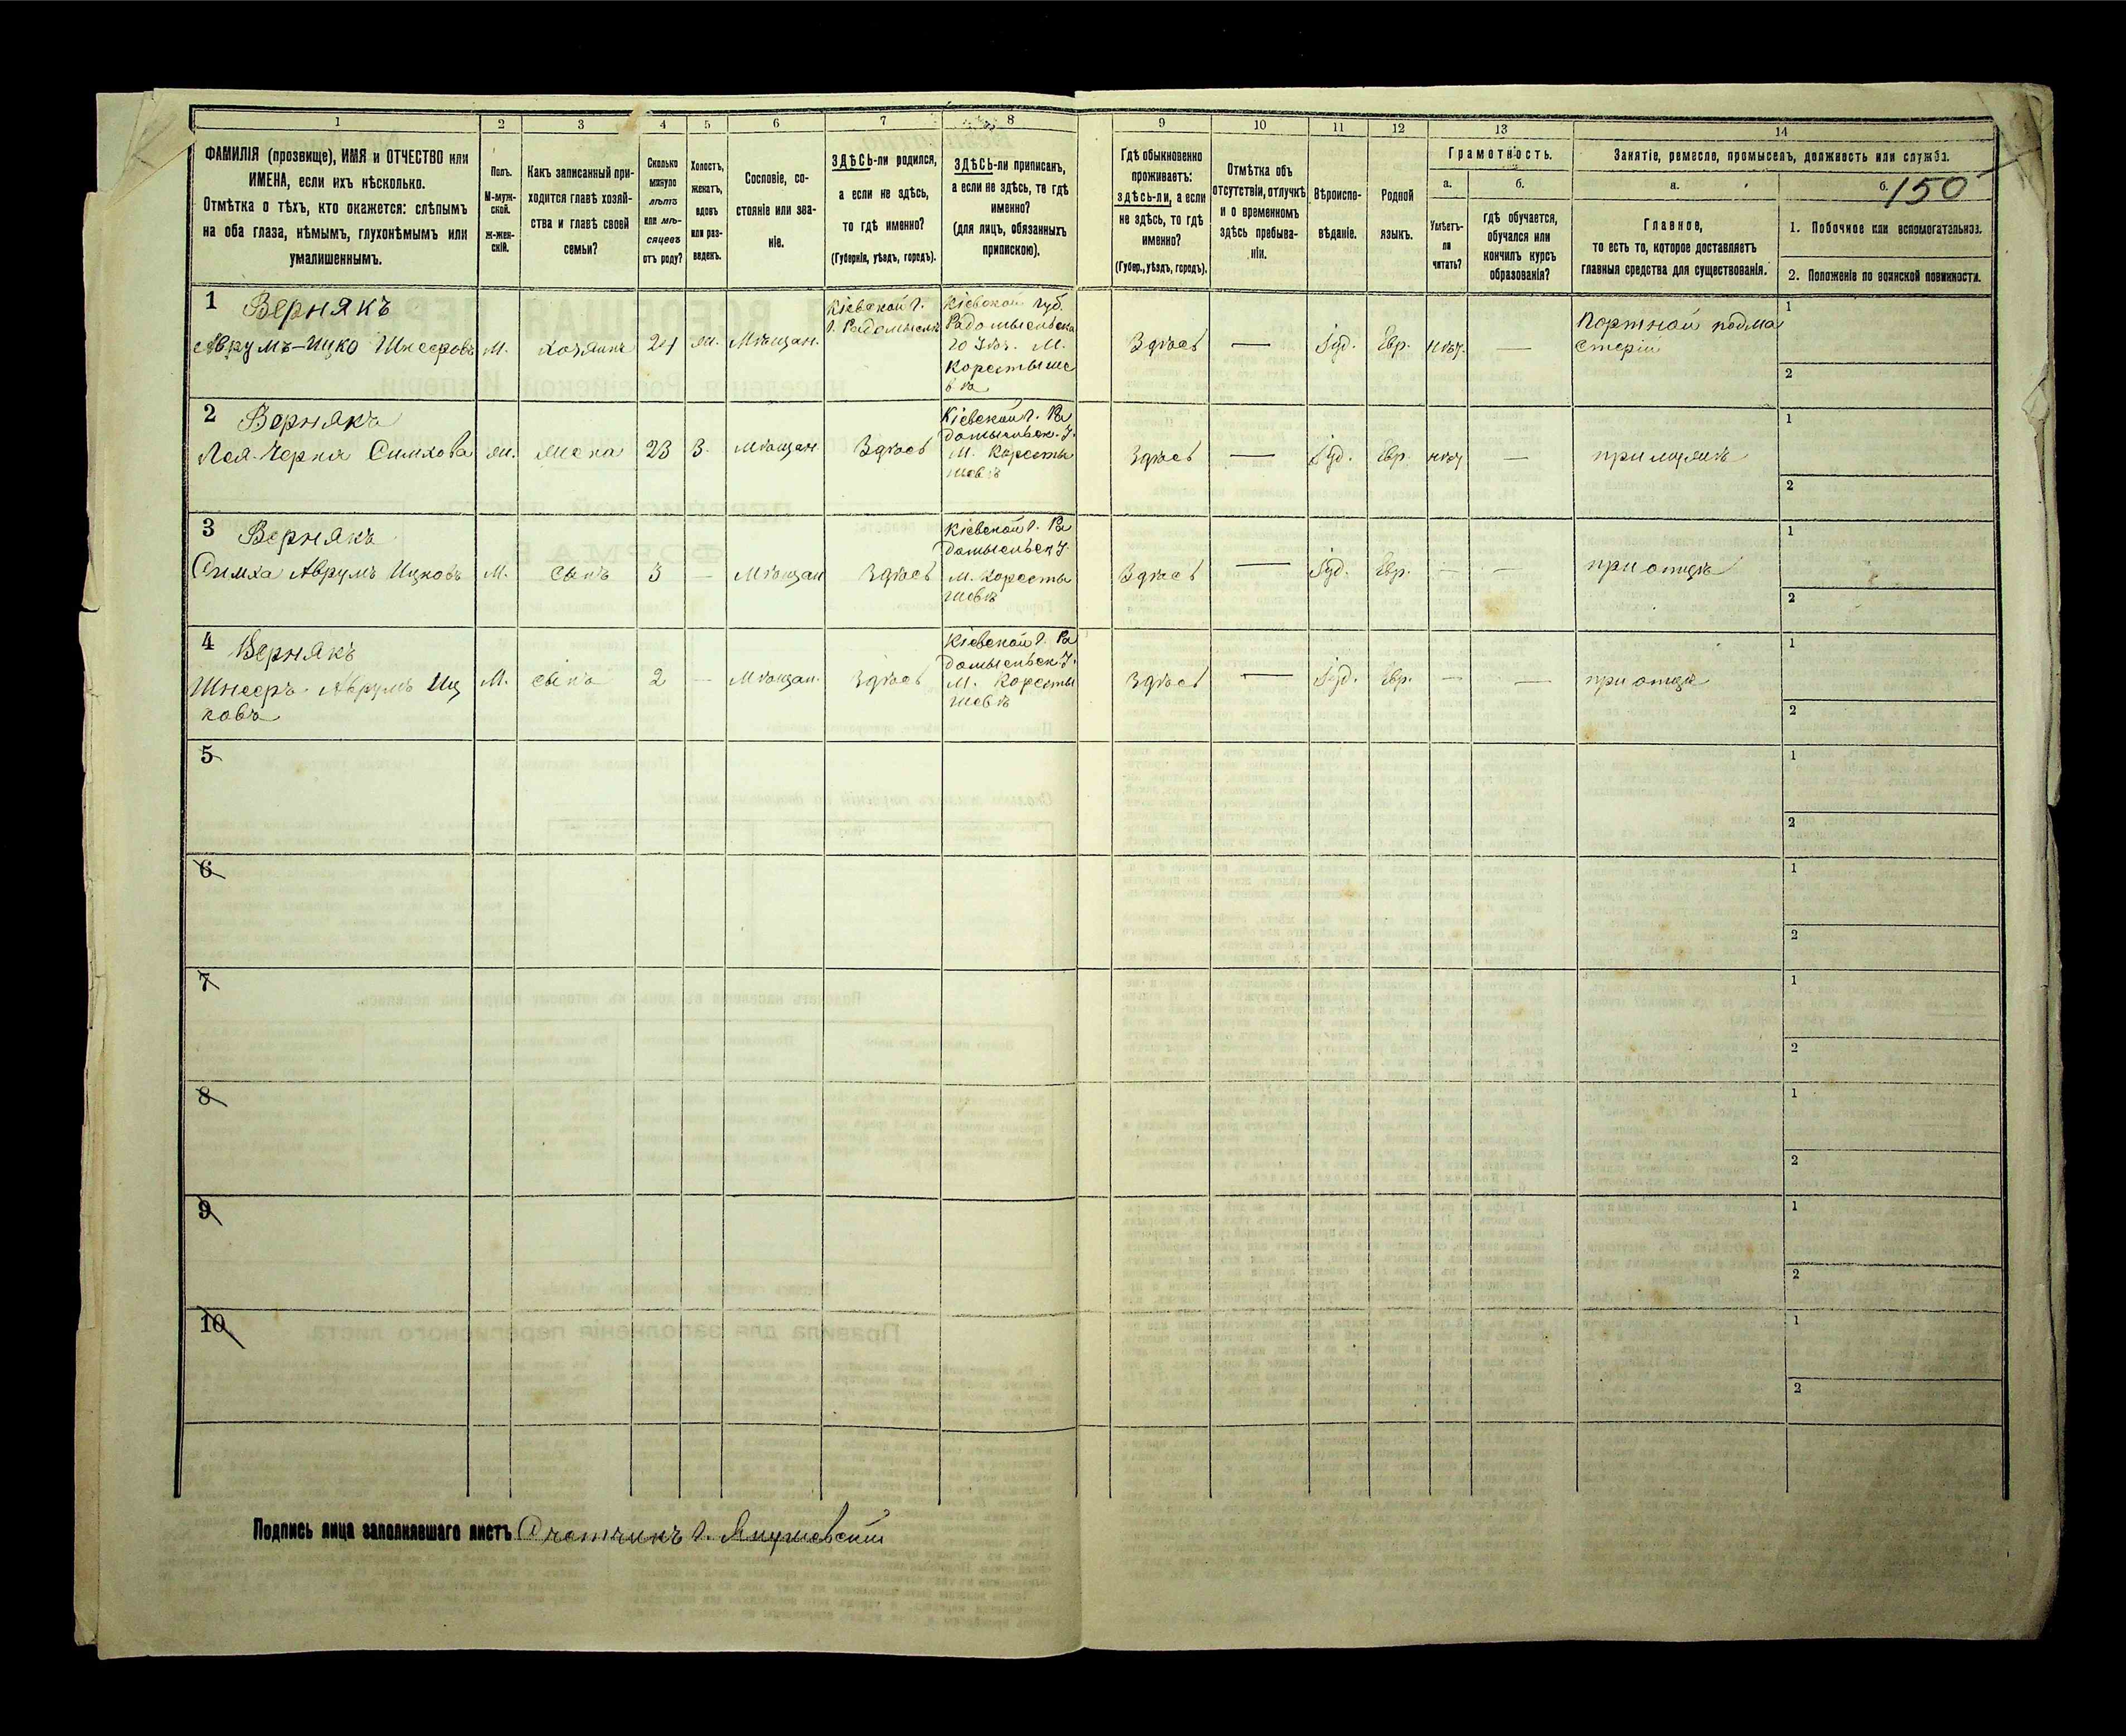 1 2 3 4 5 6 7 8 9 10 11 12 13 14
ФАМИЛІЯ (прозвище), ИМЯ и ОТЧЕСТВО или
ИМЕНА, если ихъ нѣсколько.
Отмѣтка о тѣхъ, кто окажется: слѣпымъ
на оба глаза, нѣмымъ, глухонѣмымъ или
умалишеннымъ.
Полъ.
М-муж-
ской.
ж-жен-
скій.
Какъ записанный при-
ходится главѣ хозяй-
ства и главѣ своей
семьи?
Сколько
минуло
лѣтъ
или мѣ-
сяцевъ
отъ роду?
Холостъ,
женатъ,
вдовъ
или раз-
веденъ.
Сословіе, со-
стояніе или зва-
ніе.
ЗДѢСЬ-ли родился,
а если не здѣсь,
то гдѣ именно?
(Губернія, уѣздъ, городъ).
ЗДѢСЬ-ли приписанъ,
а если не здѣсь, то гдѣ
именно?
(для лицъ, обязанныхъ
припискою).
Гдѣ обыкновенно
проживаетъ:
здѣсь-ли, а если
не здѣсь, то гдѣ
именно?
(Губер., уѣздъ, городъ).
Отмѣтка объ
отсутствіи, отлучкѣ
и о временномъ
здѣсь пребыва-
ніи.
Вѣроиспо-
вѣданіе.
Родной
языкъ.
Грамотность.
а.
Умѣетъ-
ли
читать?
б.
гдѣ обучается,
обучался или
кончилъ курсъ
образованія?
Занятіе, ремесло, промыселъ, должность или служба.
а.
Главное,
то есть то, которое доставляетъ
главныя средства для существованія.
б.
150
1. Побочное или вспомогательное.
2. Положеніе по воинской повинности.
1 Вернякъ
Аврумъ-Ицко Шнееровъ
М.
хозяинъ
24
ж.
Мѣщан.
Кіевской г.
г. Радомысль
Кіевской губ.
Радомысльска
го Уѣз. М.
Коростыше
ва
Здѣсь
—
Іуд.
Евр.
нѣт.
—
Портной подма
стерій
1
2
2 Вернякъ
Лея-Черня Симхова
ж.
жена
23
З.
мѣщан.
Здѣсь
Кіевской г. Ра
домысльск. У.
М. Коросты
шевъ
Здѣсь
—
Іуд.
Евр.
нѣт
—
при мужѣ
1
2
3 Вернякъ
Симха Аврумъ Ицковъ
М.
сынъ
3
—
Мѣщан
Здѣсь
Кіевской г. Ра
домысльск У.
М. Коросты
шевъ
Здѣсь
—
Іуд.
Евр.
—
—
при отцѣ
1
2
4 Вернякъ
Шнееръ Аврумъ Иц
ковъ
М.
сынъ
2
—
Мѣщан.
Здѣсь
Кіевской г. Ра
домысльск. У.
М. Коросты
шевъ
Здѣсь
—
Іуд.
Евр.
—
—
при отцѣ
1
2
5
1
2
6
1
2
7
1
2
8
1
2
9
1
2
10
1
2
Подпись лица заполнявшаго листъ Счетчикъ